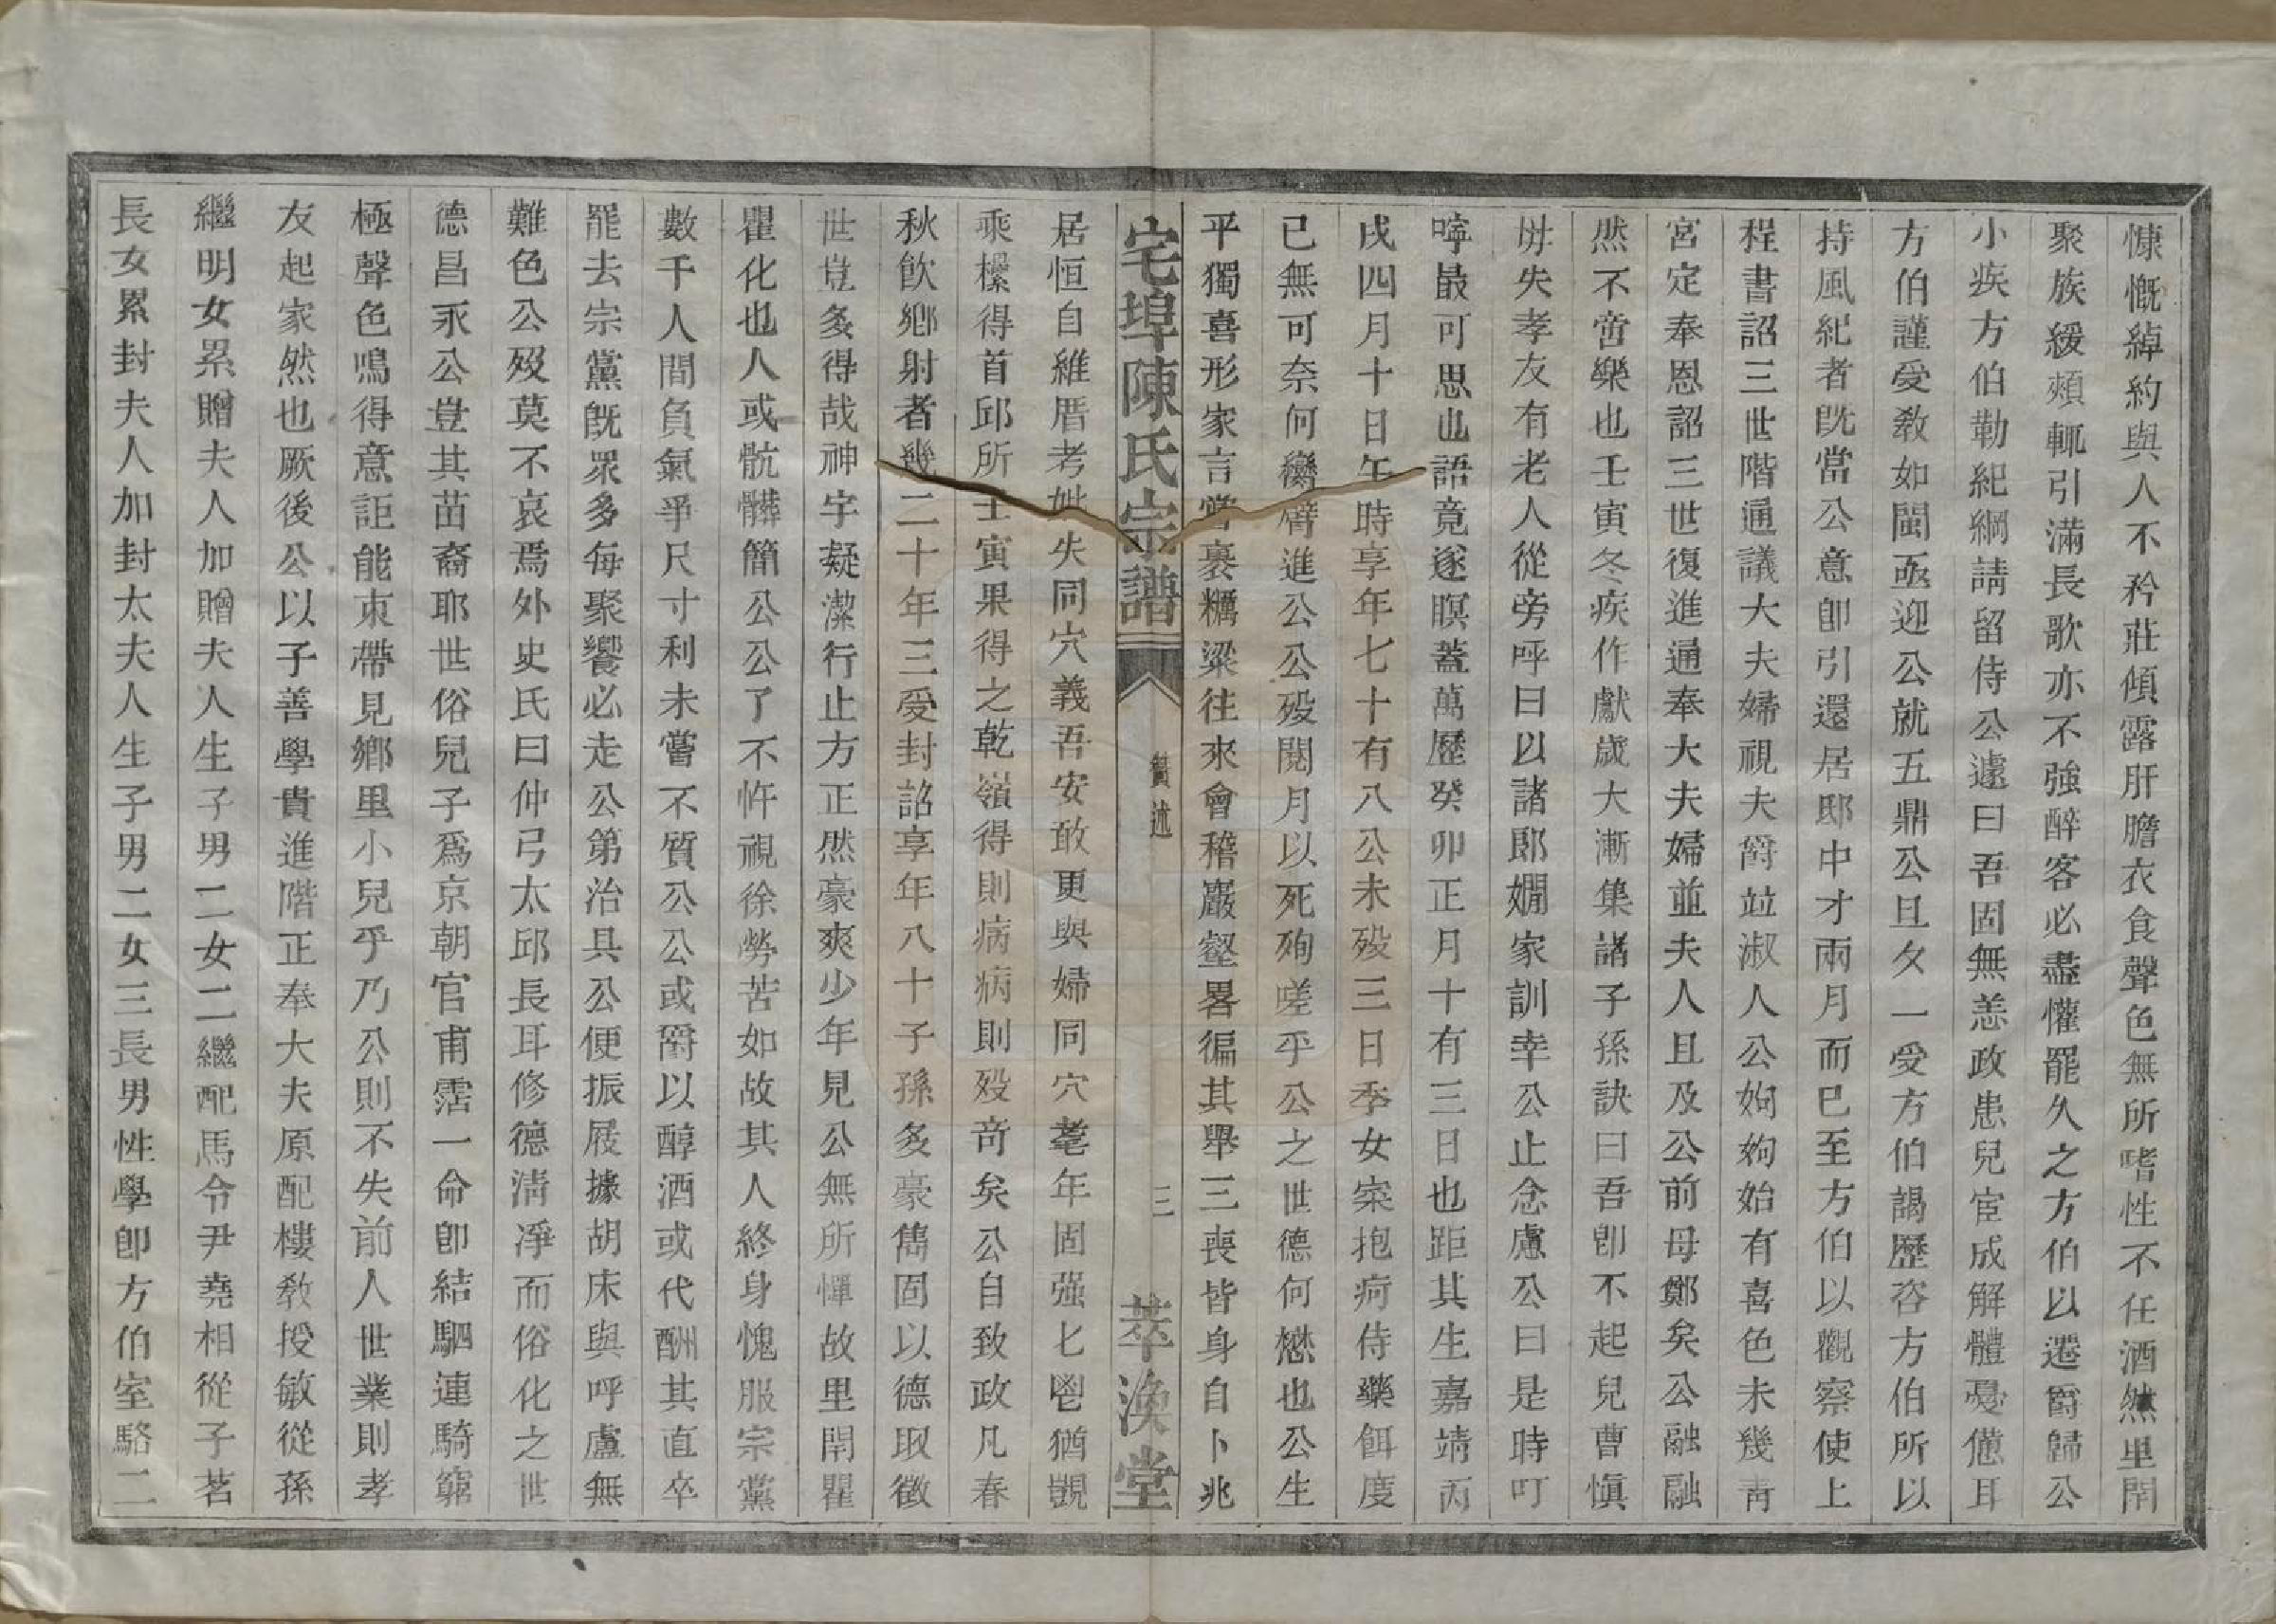 慷慨綽約與人不矜莊傾露肝膽衣食聲色無所嗜性不任酒然里閈
聚族緩頰輒引滿長歌亦不強醉客必盡懽罷久之方伯以遷爵歸公
小疾方伯勒紀綱請留侍公遽曰吾固無恙政患兒宦成解體憂憊耳
方伯謹受敎如閩亟迎公就五鼎公旦夕一受方伯謁歷咨方伯所以
持風紀者旣當公意卽引還居邸中才兩月而巳至方伯以觀察使上
程書詔三世階通議大夫婦視夫爵竝淑人公姁姁始有喜色未幾靑
宮定奉恩詔三世復進通奉大夫婦並夫人且及公前母鄭矣公融融
然不啻樂也壬寅冬疾作獻歲大漸集諸子孫訣曰吾卽不起兒曹愼
毋失孝友有老人從旁呼曰以諸郞嫺家訓幸公止念慮公曰是時叮
嚀最可思也語竟遂瞑蓋萬歷癸卯正月十有三日也距其生嘉靖丙
戌四月十日午時享年七十有八公未歿三日季女寀抱疴侍藥餌度
已無可奈何臠臂進公公歿閱月以死殉嗟乎公之世德何懋也公生
平獨喜形家言嘗裹糲粱往來會稽巖壑畧徧其舉三喪皆身自卜兆
宅埠陳氏宗譜
舊述
三
萃渙堂
居恒自維厝考妣失同穴義吾安敢更與婦同穴耄年固强匕鬯猶覬
乘欙得首邱所壬寅果得之乾嶺得則病病則歿奇矣公自致政凡春
秋飮鄕射者幾二十年三受封詔享年八十子孫多豪雋固以德取徵
世豈多得哉神宇凝潔行止方正然豪爽少年見公無所憚故里閈瞿
瞿化也人或骯髒簡公公了不忤視徐勞苦如故其人終身愧服宗黨
數千人間負氣爭尺寸利未嘗不質公公或爵以醇酒或代酬其直卒
罷去宗黨旣眾多每聚饗必走公第治具公便振屐據胡床與呼盧無
難色公歿莫不哀焉外史氏曰仲弓太邱長耳修德淸凈而俗化之世
德昌永公豈其苗裔耶世俗兒子爲京朝官甫霑一命卽結駟連騎窮
極聲色鳴得意詎能束帶見鄕里小兒乎乃公則不失前人世業則孝
友起家然也厥後公以子善學貴進階正奉大夫原配樓敎授敏從孫
繼明女累贈夫人加贈夫人生子男二女二繼配馬令尹堯相從子茗
長女累封夫人加封太夫人生子男二女三長男性學卽方伯室駱二